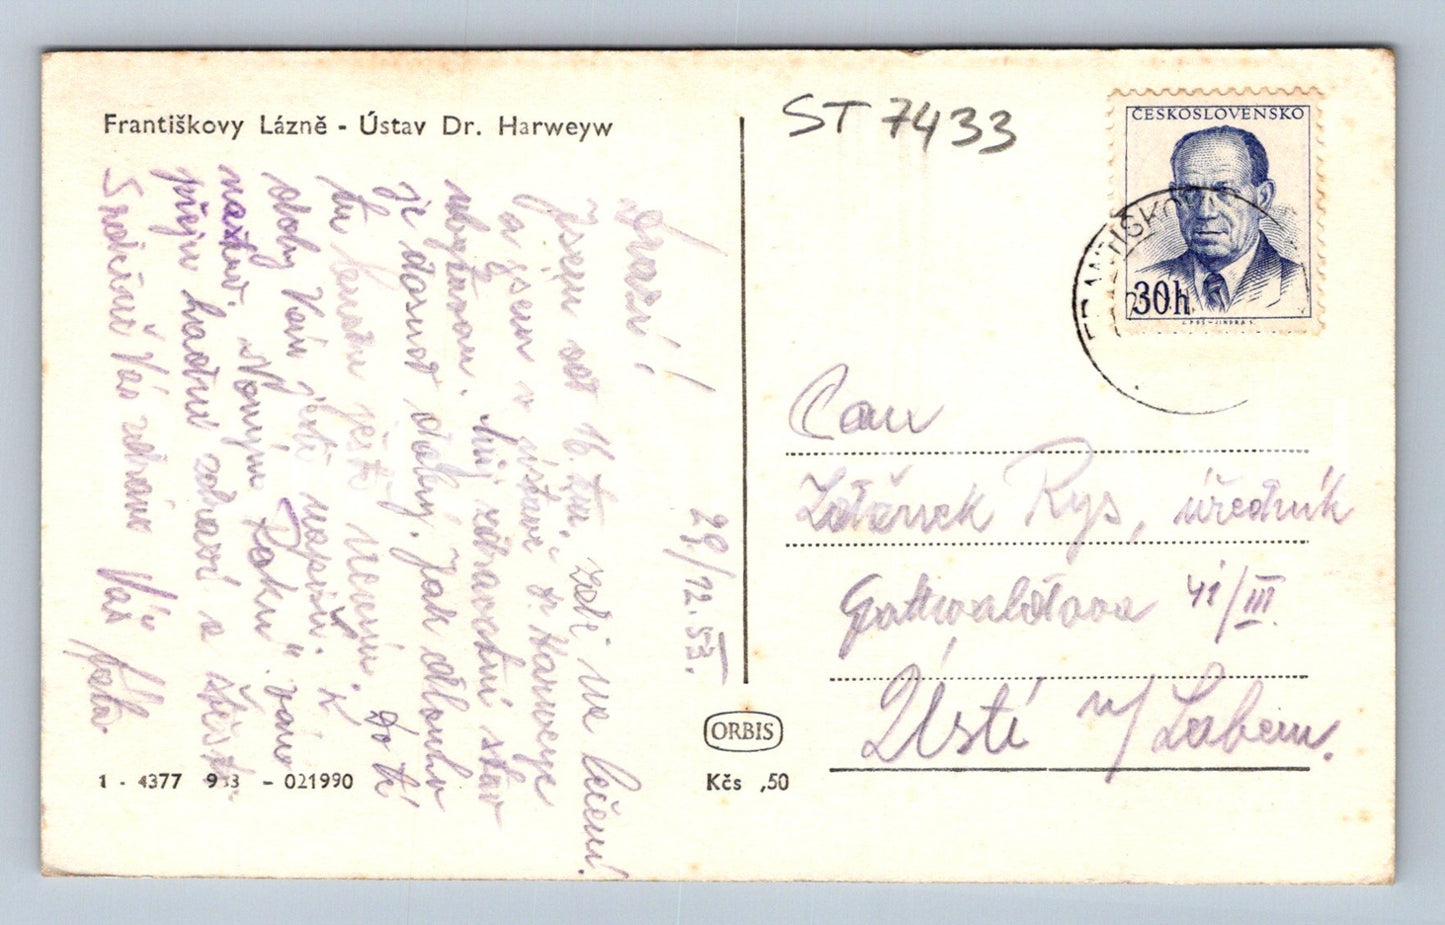 Františkovy Lázně - Ústav Dr. Harweyw
ST 7433
ČESKOSLOVENSKO
30h
FRANTIŠKOV
29/12.53.
Drazí!
Jsem od 16. t.m. zde na léčení
a jsem v ústavě Dr. Harweye
ubytován. Můj zdravotní stav
je dosud dobrý. Jak dlouho
tu budu ještě nevím. Do té
doby Vám ještě napíši. K
nastáv. „Novým Roku“ Vám
přeji hodně zdraví a štěstí.
Srdečně Vás zdraví Váš
Pan
Zdeněk Rys, úředník
Gottwaldova 41/III.
Ústí n/Labem.
ORBIS
1 - 4377 953 - 021990
Kčs ,50